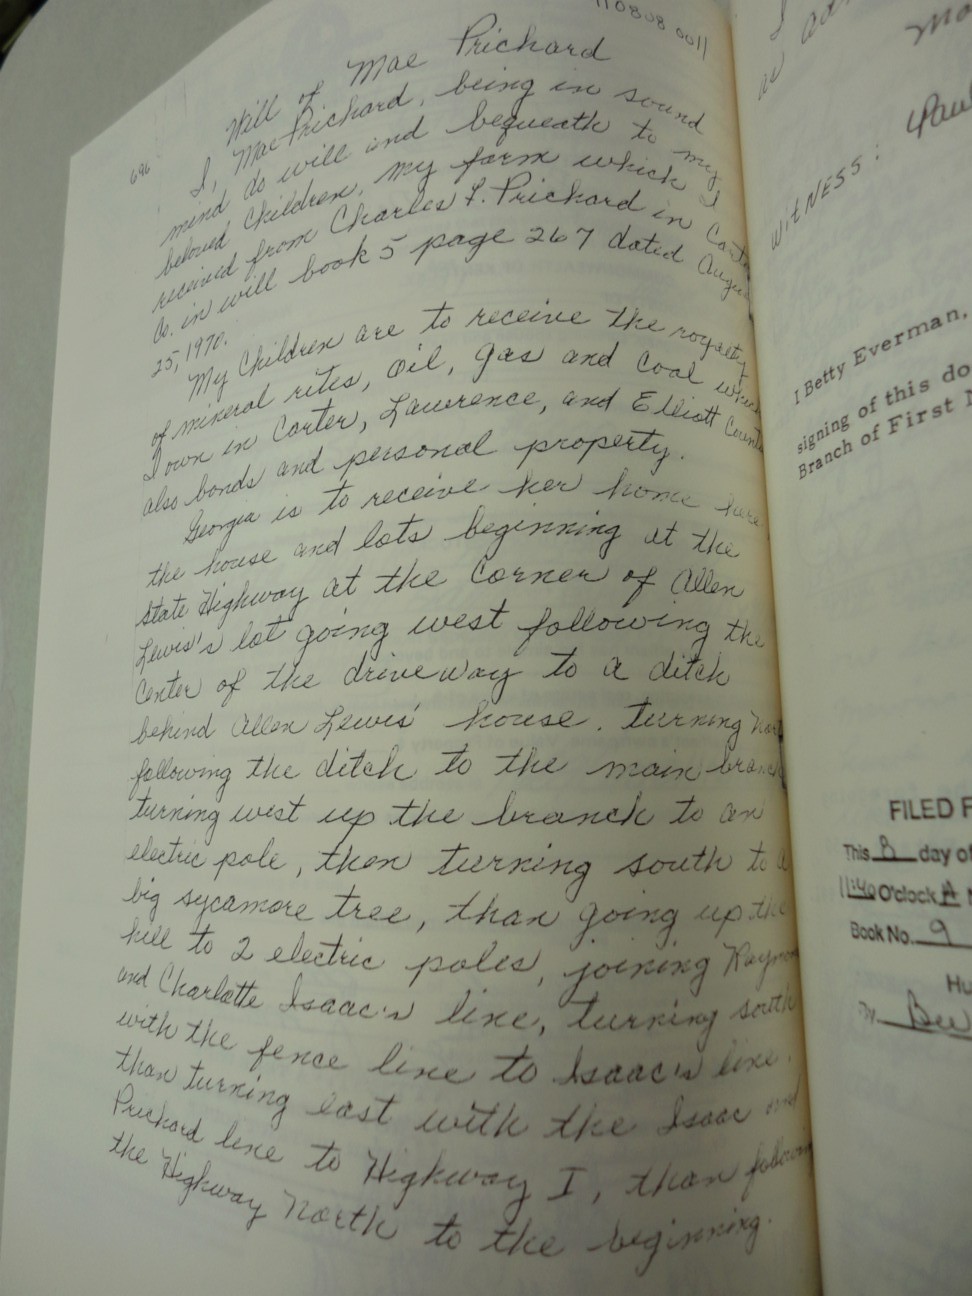 110808 0011
696
Will of Mae Prichard
I, Mae Prichard, being in sound
mind do will and bequeath to my
beloved Children, my farm which I
received from Charles F. Prichard in
Co. in will book 5 page 267 dated
25, 1970.
My Children are to receive the royalty
of mineral rites, oil, gas and coal
I own in Carter, Lawrence, and Elliott
also bonds and personal property.
Georgia is to receive her home here
the house and lots beginning at the
State Highway at the Corner of Allen
Lewis's lot going west following the
Center of the driveway to a ditch
behind Allen Lewis' house. turning
following the ditch to the main
turning west up the branch to an
electric pole, then turning south to a
big sycamore tree, than going up the
hill to 2 electric poles, joining
and Charlotte Isaac's line, turning south
with the fence line to Isaac's line.
than turning east with the Isaac and
Prichard line to Highway I, than
the Highway North to the beginning.
I
as
WITNESS:
I Betty Everman,
signing of this
Branch of First
FILED
This 8 day of
11:46 O'clock A
Book No. 9